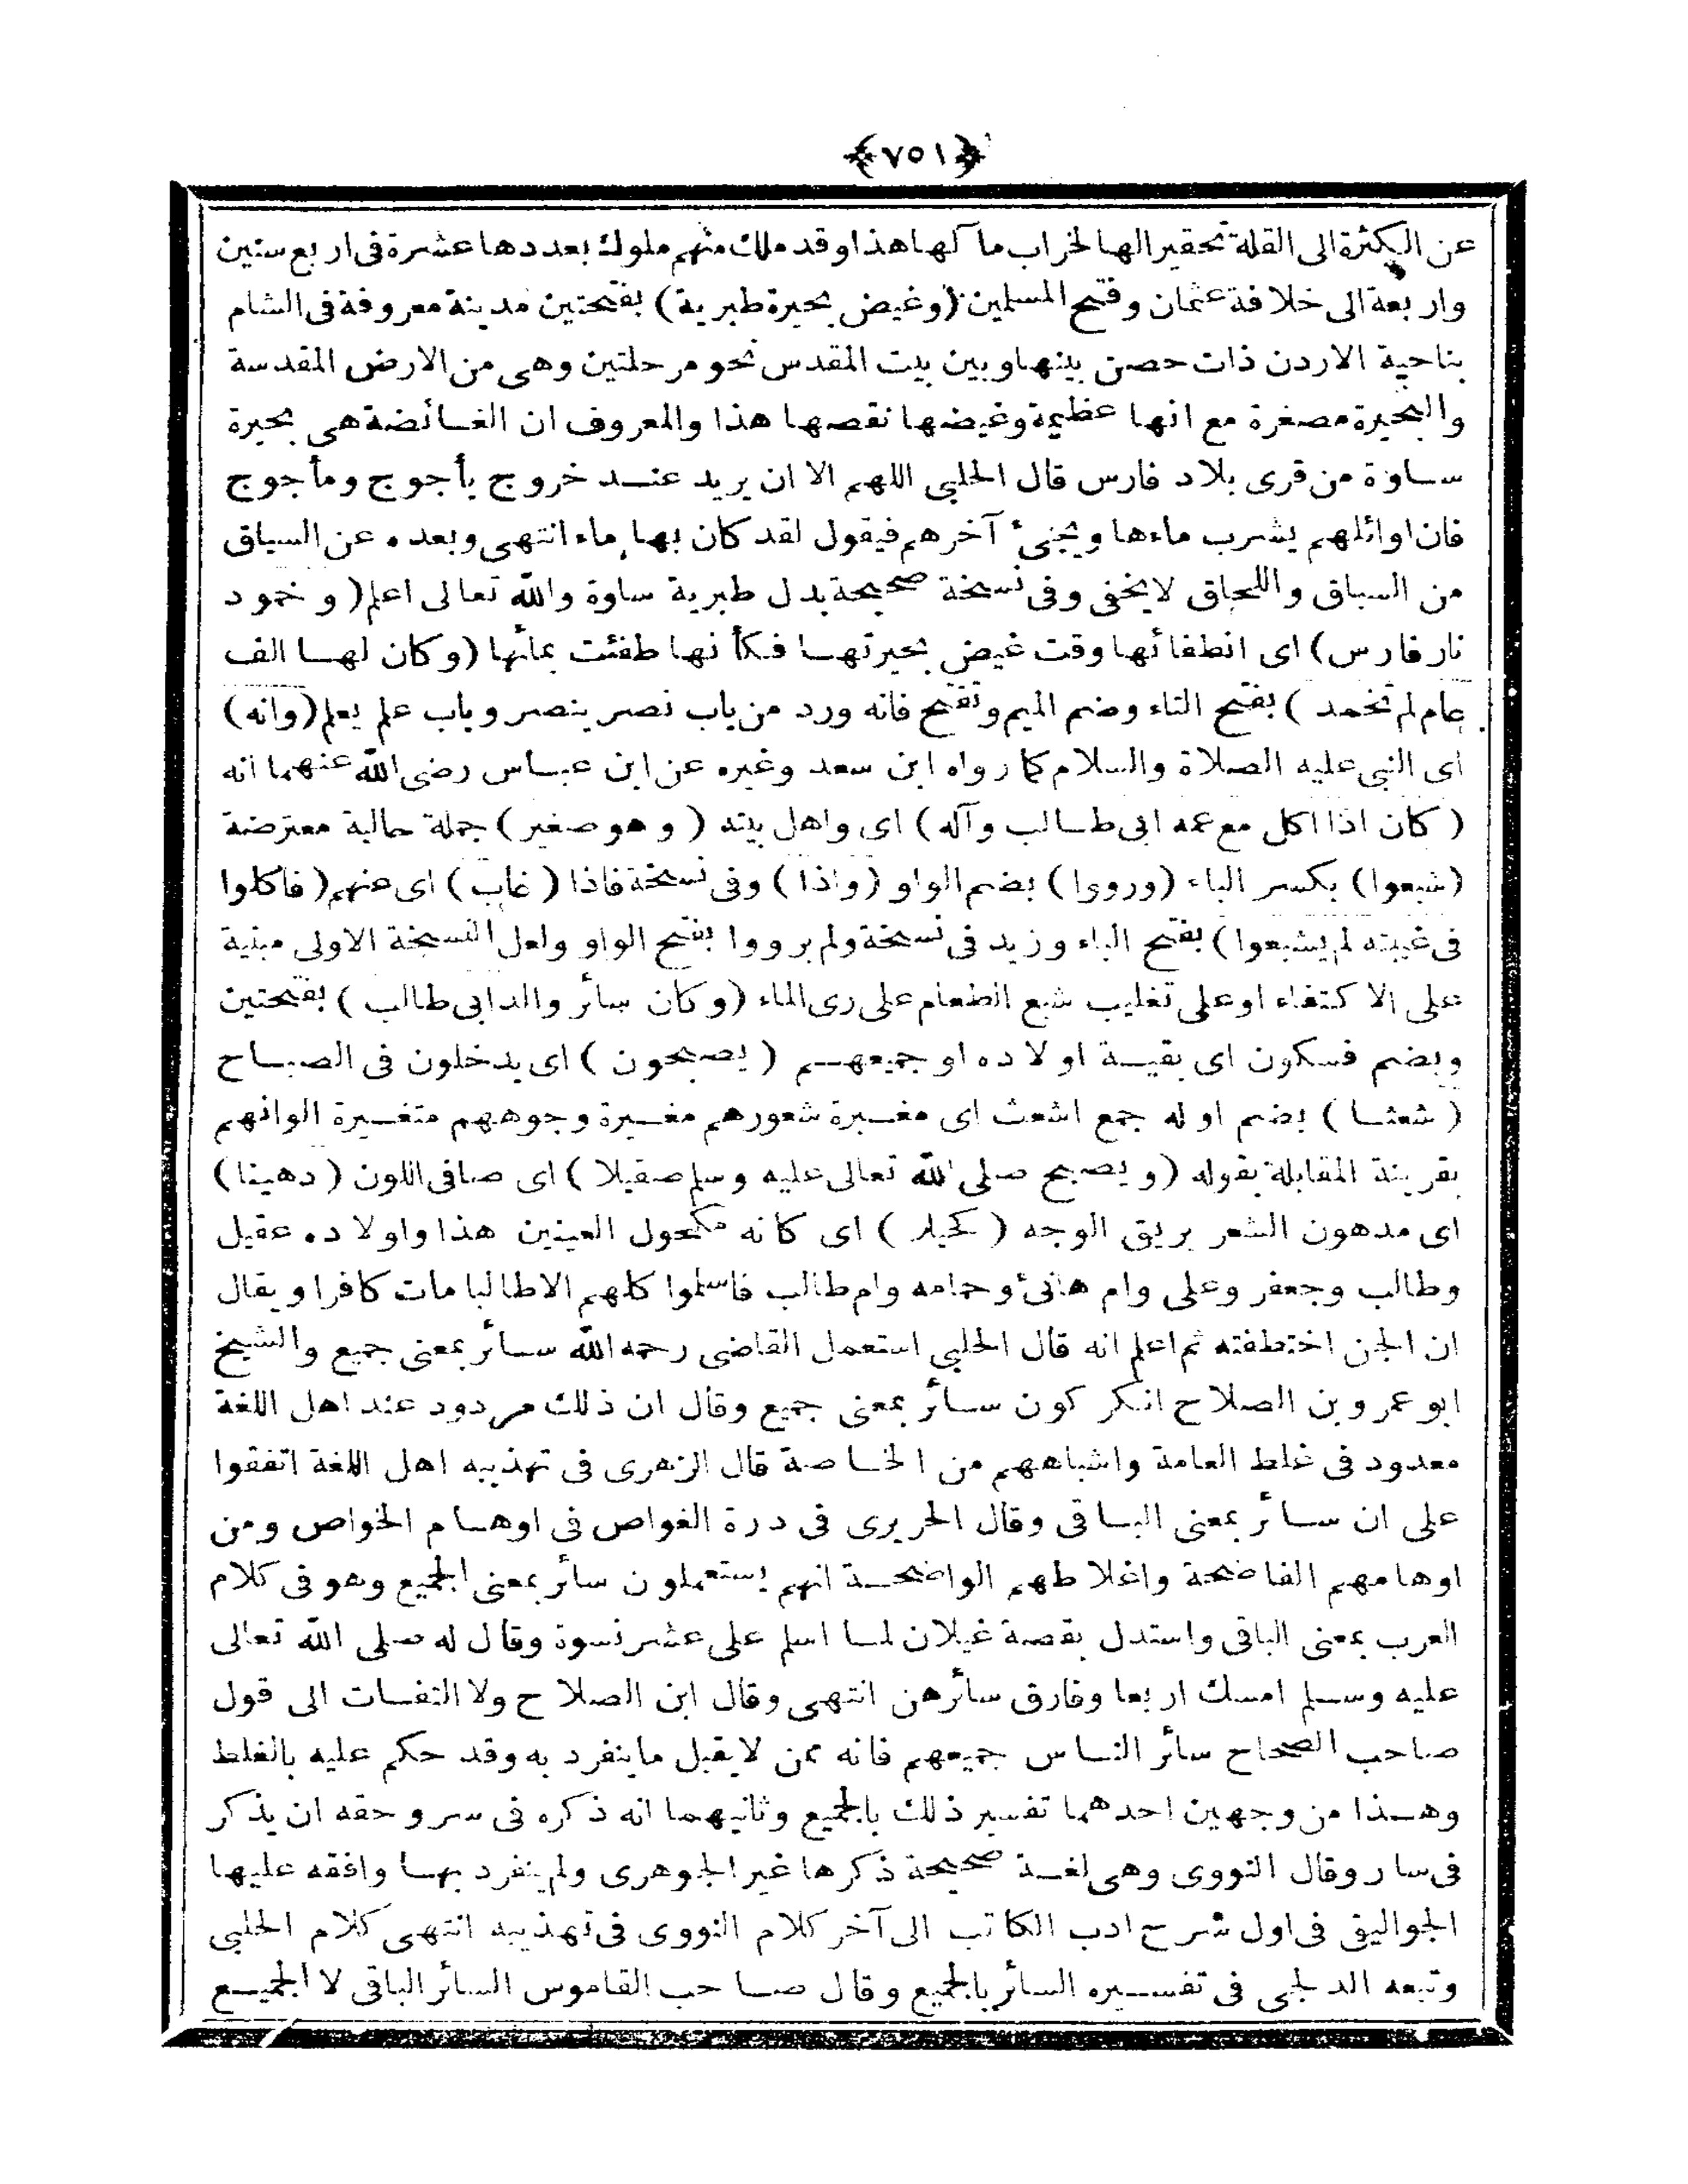 ﴿٧٥١﴾
عن الكثرة الى القلة تحقير الها لخراب مآ لها هذا وقد ملك منهم ملوك بعددها عشرة فى اربع سنين
واربعة الى خلافة عثمان وفتح المسلمين (وغيض بحيرة طبرية) بفتحتين مدينة معروفة فى الشام
بناحية الاردن ذات حصن بينها وبين بيت المقدس نحو مرحلتين وهى من الارض المقدسة
والبحيرة مصغرة مع انها عظيمة وغيضها نقصها هذا والمعروف ان الغائضة هى بحيرة
ساوة من قرى بلاد فارس قال الحلبى اللهم الا ان يريد عند خروج يأجوج ومأجوج
فان اوائلهم يشرب ماءها ويجئ آخرهم فيقول لقد كان بها ماء انتهى وبعده عن السياق
من السباق واللحاق لا يخفى وفى نسخة صحيحة بدل طبرية ساوة والله تعالى اعلم (وخمود
نار فارس) اى انطفائها وقت غيض بحيرتها فكأنها طفئت بمائها (وكان لها الف
عام لم تخمد) بفتح التاء وضم الميم وتفتح فانه ورد من باب نصر ينصر وباب علم يعلم (وانه)
اى النبى عليه الصلاة والسلام كما رواه ابن سعد وغيره عن ابن عباس رضى الله عنهما انه
(كان اذا اكل مع عمه ابى طالب وآله) اى واهل بيته (وهو صغير) جملة حالية معترضة
(شبعوا) بكسر الباء (ورووا) بضم الواو (واذا) وفى نسخة فاذا (غاب) اى عنهم (فاكلوا
فى غيبته لم يشبعوا) بفتح الباء وزيد فى نسخة ولم يرووا بفتح الواو ولعل النسخة الاولى مبنية
على الاكتفاء او على تغليب شبع الطعام على رى الماء (وكان سائر والد ابى طالب) بفتحتين
وبضم فسكون اى بقية اولاده او جميعهم (يصبحون) اى يدخلون فى الصباح
(شعثا) بضم اوله جمع اشعث اى مغبرة شعورهم مغيرة وجوههم متغيرة الوانهم
بقرينة المقابلة بقوله (ويصبح صلى الله تعالى عليه وسلم صقيلا) اى صافى اللون (دهينا)
اى مدهون الشعر بريق الوجه (كحيلا) اى كانه مكحول العينين هذا واولاده عقيل
وطالب وجعفر وعلى وام هانئ وحمامه وام طالب فاسلموا كلهم الا طالبا مات كافرا ويقال
ان الجن اختطفته ثم اعلم انه قال الحلبى استعمل القاضى رحمه الله سائر بمعنى جميع والشيخ
ابو عمرو بن الصلاح انكر كون سائر بمعنى جميع وقال ان ذلك مردود عند اهل اللغة
معدود فى غلط العامة واشباههم من الخاصة قال الزهرى فى تهذيبه اهل اللغة اتفقوا
على ان سائر بمعنى الباقى وقال الحريرى فى درة الغواص فى اوهام الخواص ومن
اوهامهم الفاضحة واغلاطهم الواضحة انهم يستعملون سائر بمعنى الجميع وهو فى كلام
العرب بمعنى الباقى واستدل بقصة غيلان لما اسلم على عشر نسوة وقال له صلى الله تعالى
عليه وسلم امسك اربعا وفارق سائرهن انتهى وقال ابن الصلاح ولا التفات الى قول
صاحب الصحاح سائر الناس جميعهم فانه ممن لا يقبل ما ينفرد به وقد حكم عليه بالغلط
وهذا من وجهين احدهما تفسير ذلك بالجميع وثانيهما انه ذكره فى سر وحقه ان يذكر
فى سار وقال النووى وهى لغة صحيحة ذكرها غير الجوهرى ولم ينفرد بها وافقه عليها
الجواليق فى اول شرح ادب الكاتب الى آخر كلام النووى فى تهذيبه انتهى كلام الحلبى
وتبعه الدلجى فى تفسيره السائر بالجميع وقال صاحب القاموس السائر الباقى لا الجميع